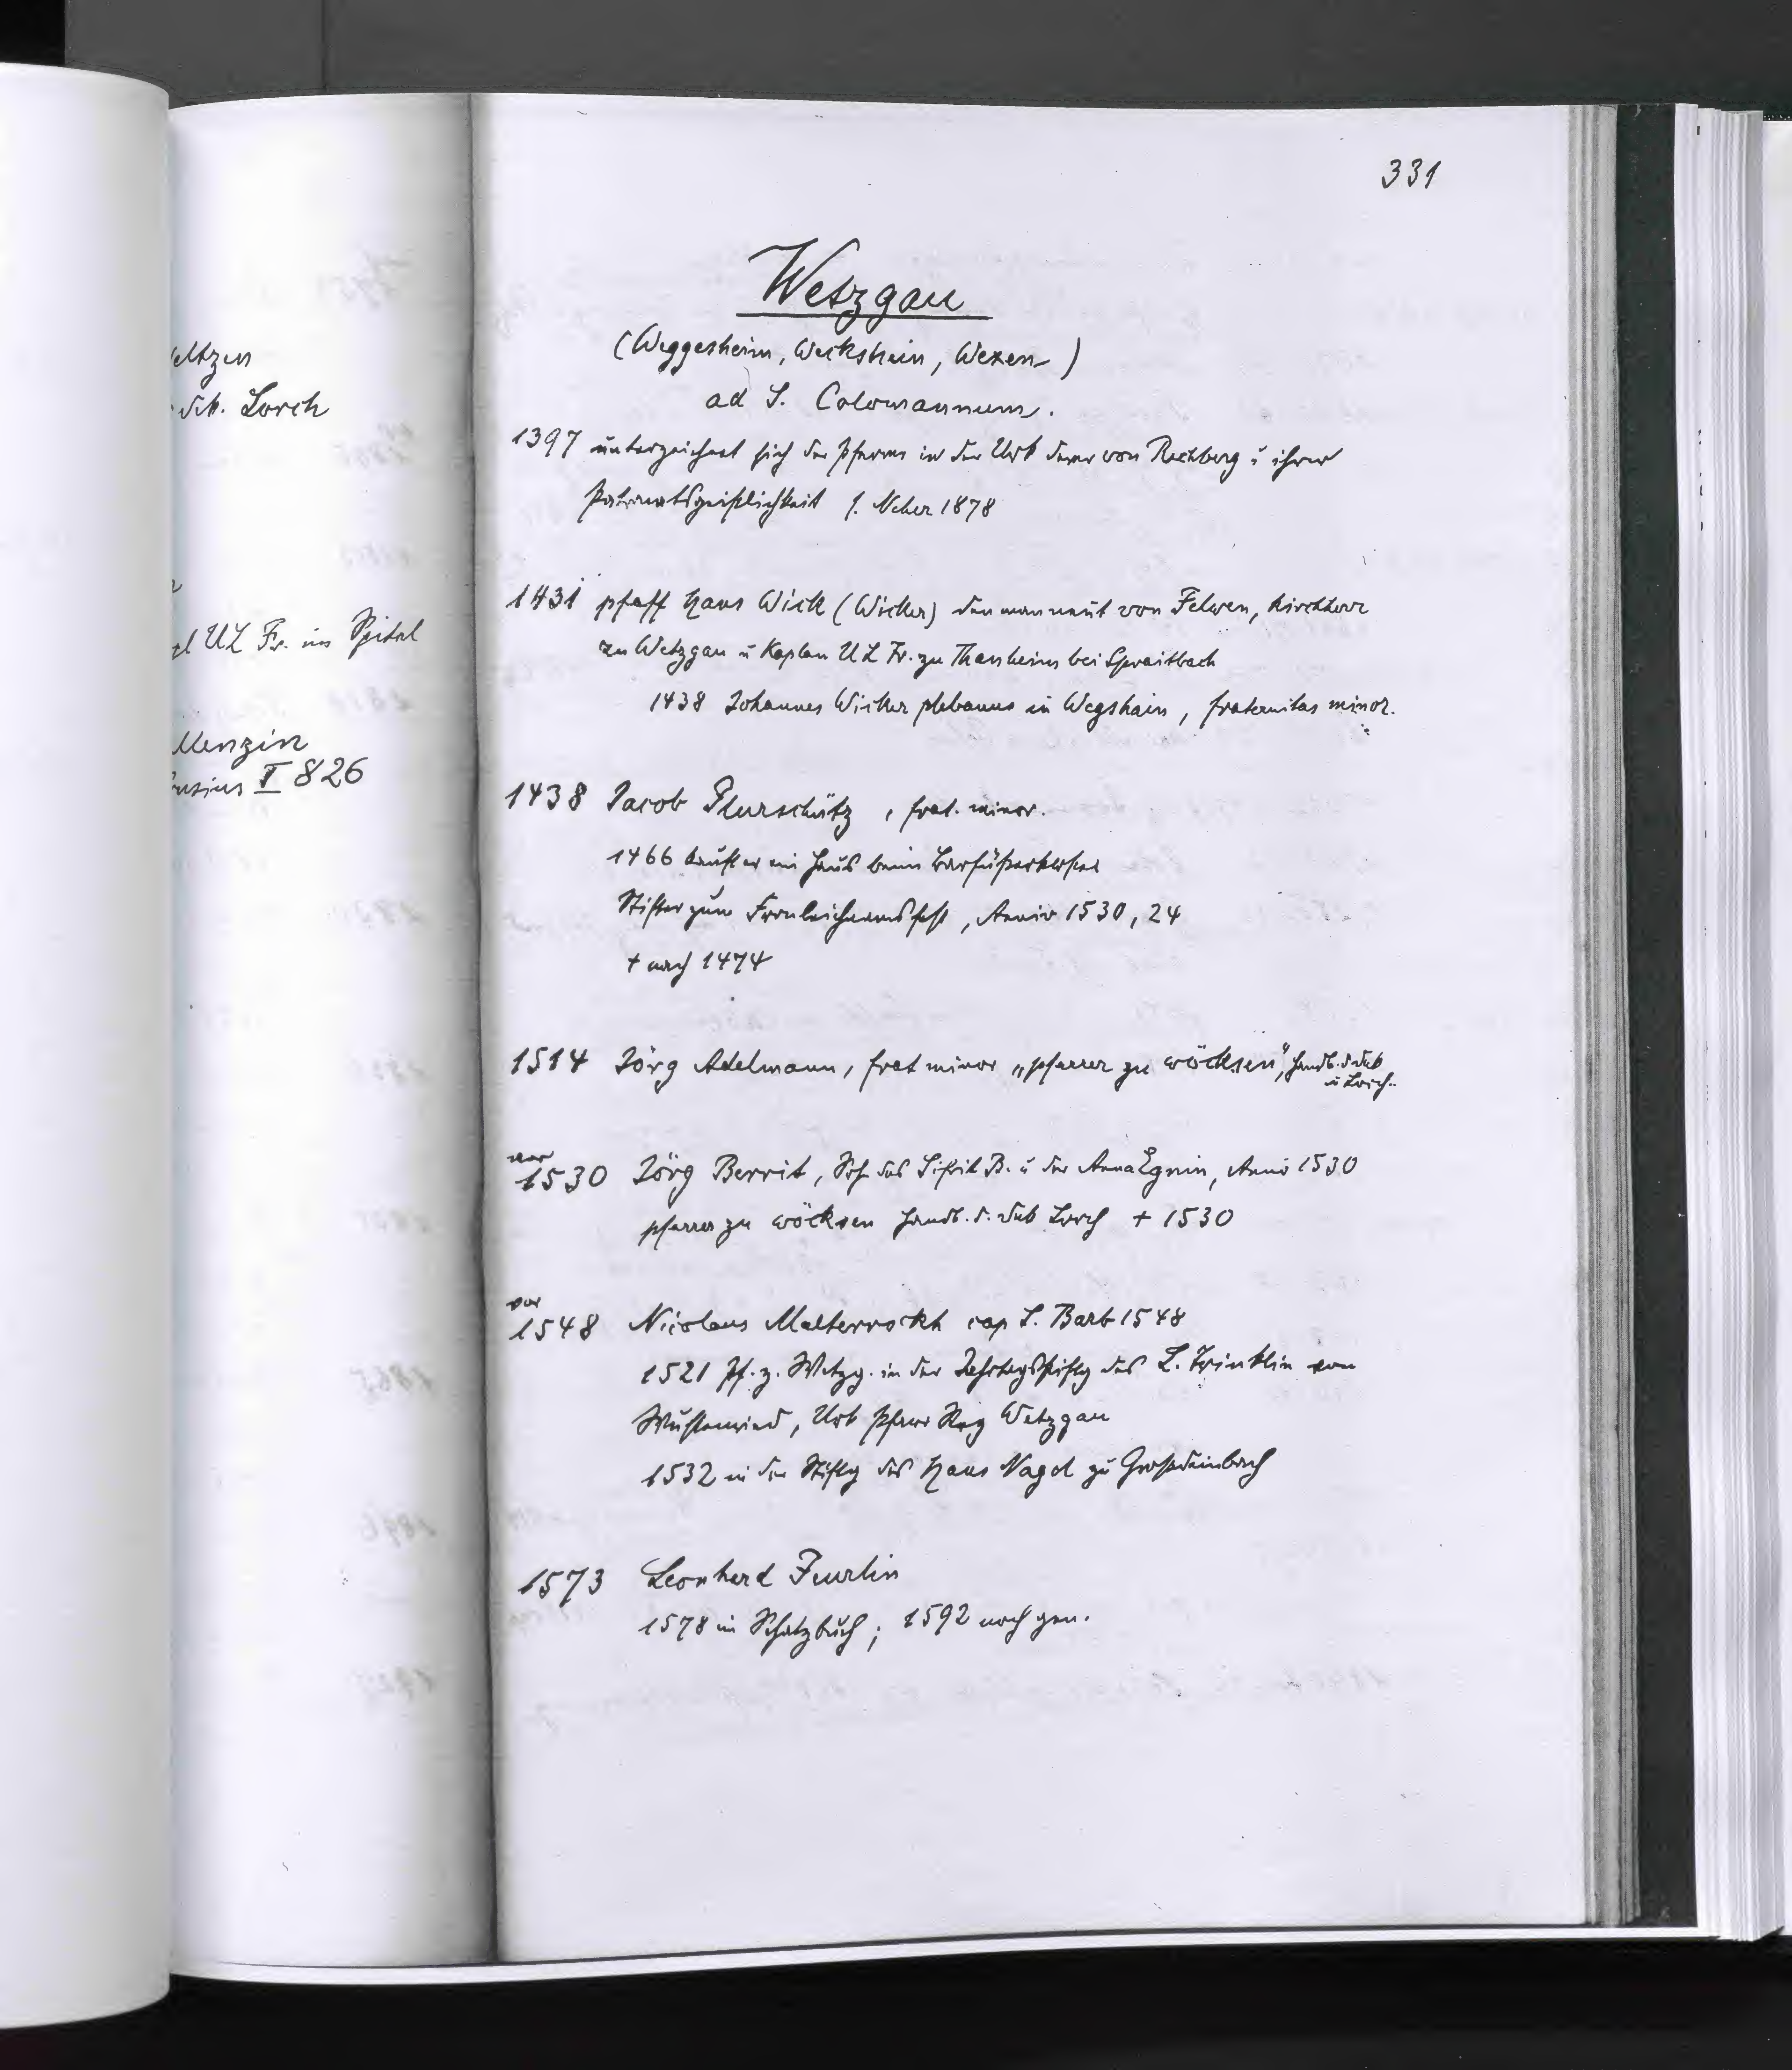 eltzen
dek. Lorch
UL Fr. im Spital
Menzin
usius II 826
331
Wetzgau
(Weggesheim, Weckshein, Wexen)
ad S. Colomannum.
1397 unterzeichnet sich der Pfarrer in der Urk derer von Rechberg u ihrer
Patronatsgeistlichkeit s. Neher 1878
1431 pfaff Hans Wick (Wicker) den man neut von Felwen, Kirchherr
zu Wetzgau u Kaplan UL Fr. zu Thanheim bei Spraitbach
1438 Johannes Wicker plebanus in Wegshain, fraternitas minor.
1438 Jacob Plurschütz, frat. minor.
1466 kaufte er ein Haus beim Barfüßerkloster
Stifter zum Fronleichnamsfest, Anniv 1530, 24
+ nach 1474
1514 Jörg Adelmann, frat minor „pfarrer zu wöcksen", Handb. d. dek
u Lorch.
vor
1530 Jörg Berrit, Soh des Sifrit B. u der Anna Egnin, Anniv 1530
pfarrer zu wöcksen Handb. d. dek Lorch + 1530
vor
1548 Nicolaus Malterrockh cap S. Barb 1548
1521 Pf. z. Wetzg. in der Jahrtagsstiftg des L. Trinklin von
Wustenried, Urk Pfarr Reg Wetzgau
1532 in der Stiftg des Hans Nagel zu Großdeinbach
1573 Leonhard Feurlin
1578 im Schatzbuch; 1592 noch gen.